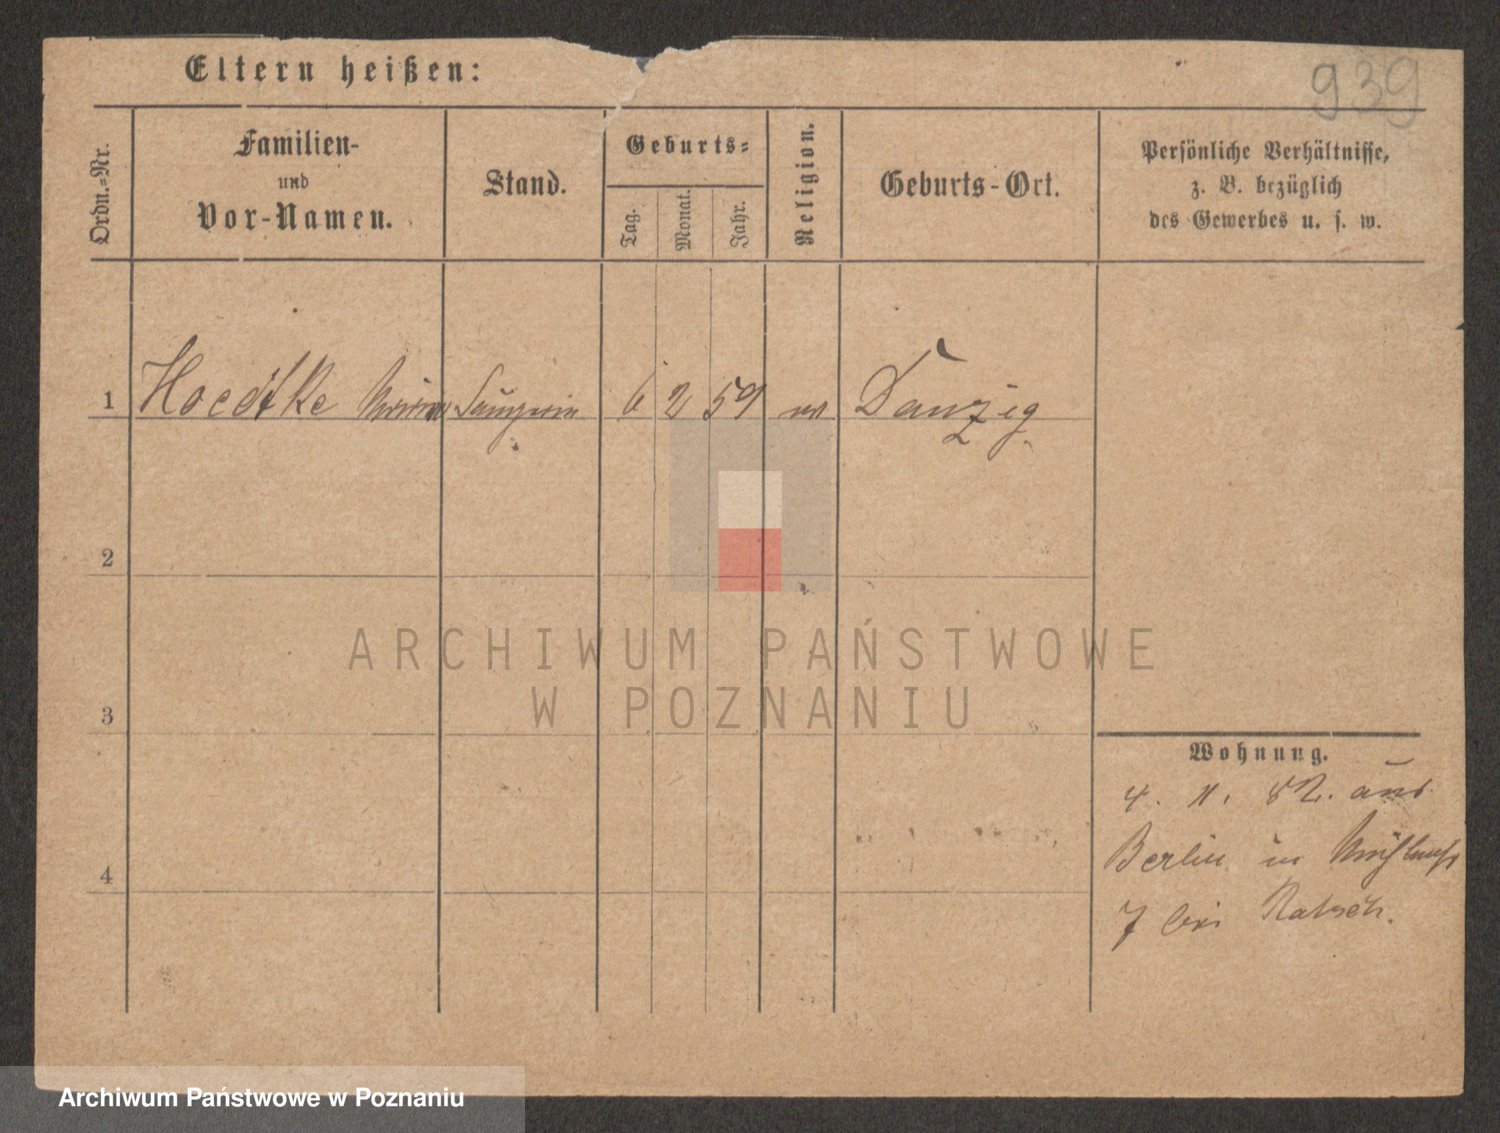 939
Eltern heißen:
Ordn.-Nr.
Familien-
und
Vor-Namen.
Stand.
Geburts-
Tag.
Monat.
Jahr.
Religion.
Geburts-Ort.
Persönliche Verhältnisse,
z. B. bezüglich
des Gewerbes u. s. w.
1 Hoedtke 6 2 59 Danzig
2
3
4
ARCHIWUM PAŃSTWOWE
W POZNANIU
Wohnung.
4. 11. 82. aus
Berlin in
7 bei Ratsch.
Archiwum Państwowe w Poznaniu